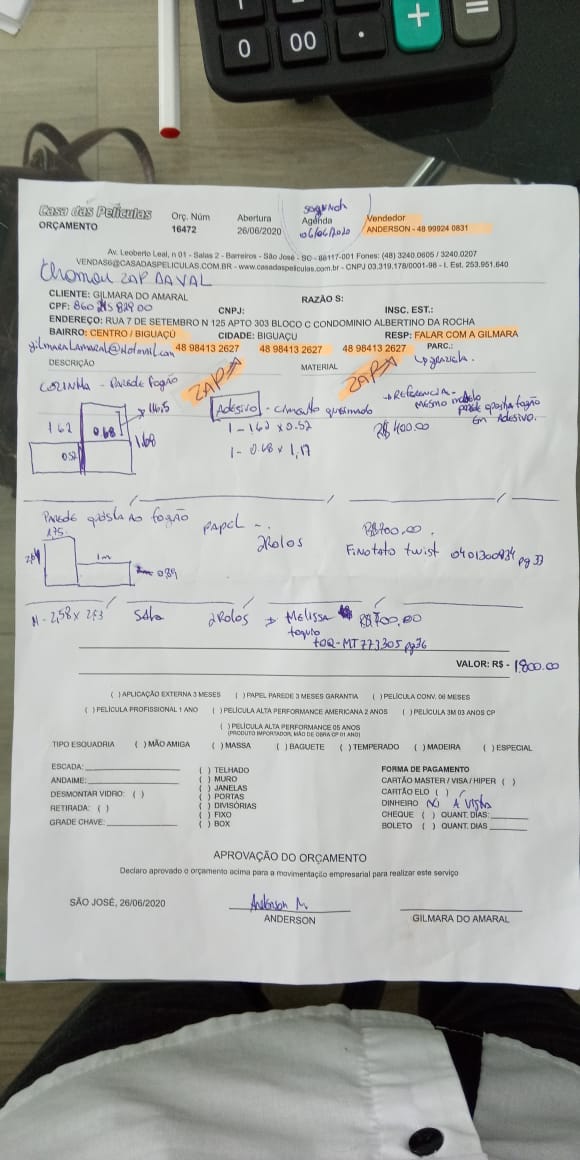 0 00 . + =
Casa das Películas
ORÇAMENTO
Orç. Núm
16472
Abertura
26/06/2020
segunda
Agenda
06/06/2020
Vendedor
ANDERSON - 48 99924 0831
Av. Leoberto Leal, n 01 - Salas 2 - Barreiros - São José - SC - 88117-001 Fones: (48) 3240.0605 / 3240.0207
VENDAS6@CASADASPELICULAS.COM.BR - www.casadaspeliculas.com.br - CNPJ 03.319.178/0001-98 - I. Est. 253.951.640
Chamou ZAP DAVAL
CLIENTE: GILMARA DO AMARAL RAZÃO S:
CPF: 860 245 829 00 CNPJ: INSC. EST.:
ENDEREÇO: RUA 7 DE SETEMBRO N 125 APTO 303 BLOCO C CONDOMINIO ALBERTINO DA ROCHA
BAIRRO: CENTRO / BIGUAÇÚ CIDADE: BIGUAÇU RESP: FALAR COM A GILMARA
@hotmail.com 48 98413 2627 48 98413 2627 48 98413 2627 PARC.:
DESCRIÇÃO MATERIAL
COZINHA - Parede fogão
ZAPA
ZAPA
Adesivo - cimento queimado
→ REFERENCIA -
MESMO modelo
parede oposta fogão
Em Adesivo.
1.62 0.68 116,5 1.68 0.52
1 - 1.62 x 0.52
1 - 0.68 x 1,17
R$ 400.00
Parede oposta ao fogão
PAPEL
2 Rolos
R$ 700,00.
Finottato twist 0401300934 pg 33
1.75
1m
0.89
M - 2,58 x 2,53 Sala 2 Rolos → Melissa R$ 700,00
toquio
TOQ-MT773305 pg 36
VALOR: R$ - 1.800.00
( ) APLICAÇÃO EXTERNA 3 MESES ( ) PAPEL PAREDE 3 MESES GARANTIA ( ) PELÍCULA CONV. 06 MESES
( ) PELÍCULA PROFISSIONAL 1 ANO ( ) PELÍCULA ALTA PERFORMANCE AMERICANA 2 ANOS ( ) PELÍCULA 3M 03 ANOS CP
( ) PELÍCULA ALTA PERFORMANCE 05 ANOS
(PRODUTO IMPORTADOR, MÃO DE OBRA CP 01 ANO)
TIPO ESQUADRIA ( ) MÃO AMIGA ( ) MASSA ( ) BAGUETE ( ) TEMPERADO ( ) MADEIRA ( ) ESPECIAL
ESCADA:
ANDAIME:
DESMONTAR VIDRO: ( )
RETIRADA: ( )
GRADE CHAVE:
( ) TELHADO
( ) MURO
( ) JANELAS
( ) PORTAS
( ) DIVISÓRIAS
( ) FIXO
( ) BOX
FORMA DE PAGAMENTO
CARTÃO MASTER / VISA / HIPER ( )
CARTÃO ELO ( )
DINHEIRO A Vista
CHEQUE ( ) QUANT. DIAS:
BOLETO ( ) QUANT. DIAS
APROVAÇÃO DO ORÇAMENTO
Declaro aprovado o orçamento acima para a movimentação empresarial para realizar este serviço
SÃO JOSÉ, 26/06/2020
Anderson M.
ANDERSON
GILMARA DO AMARAL